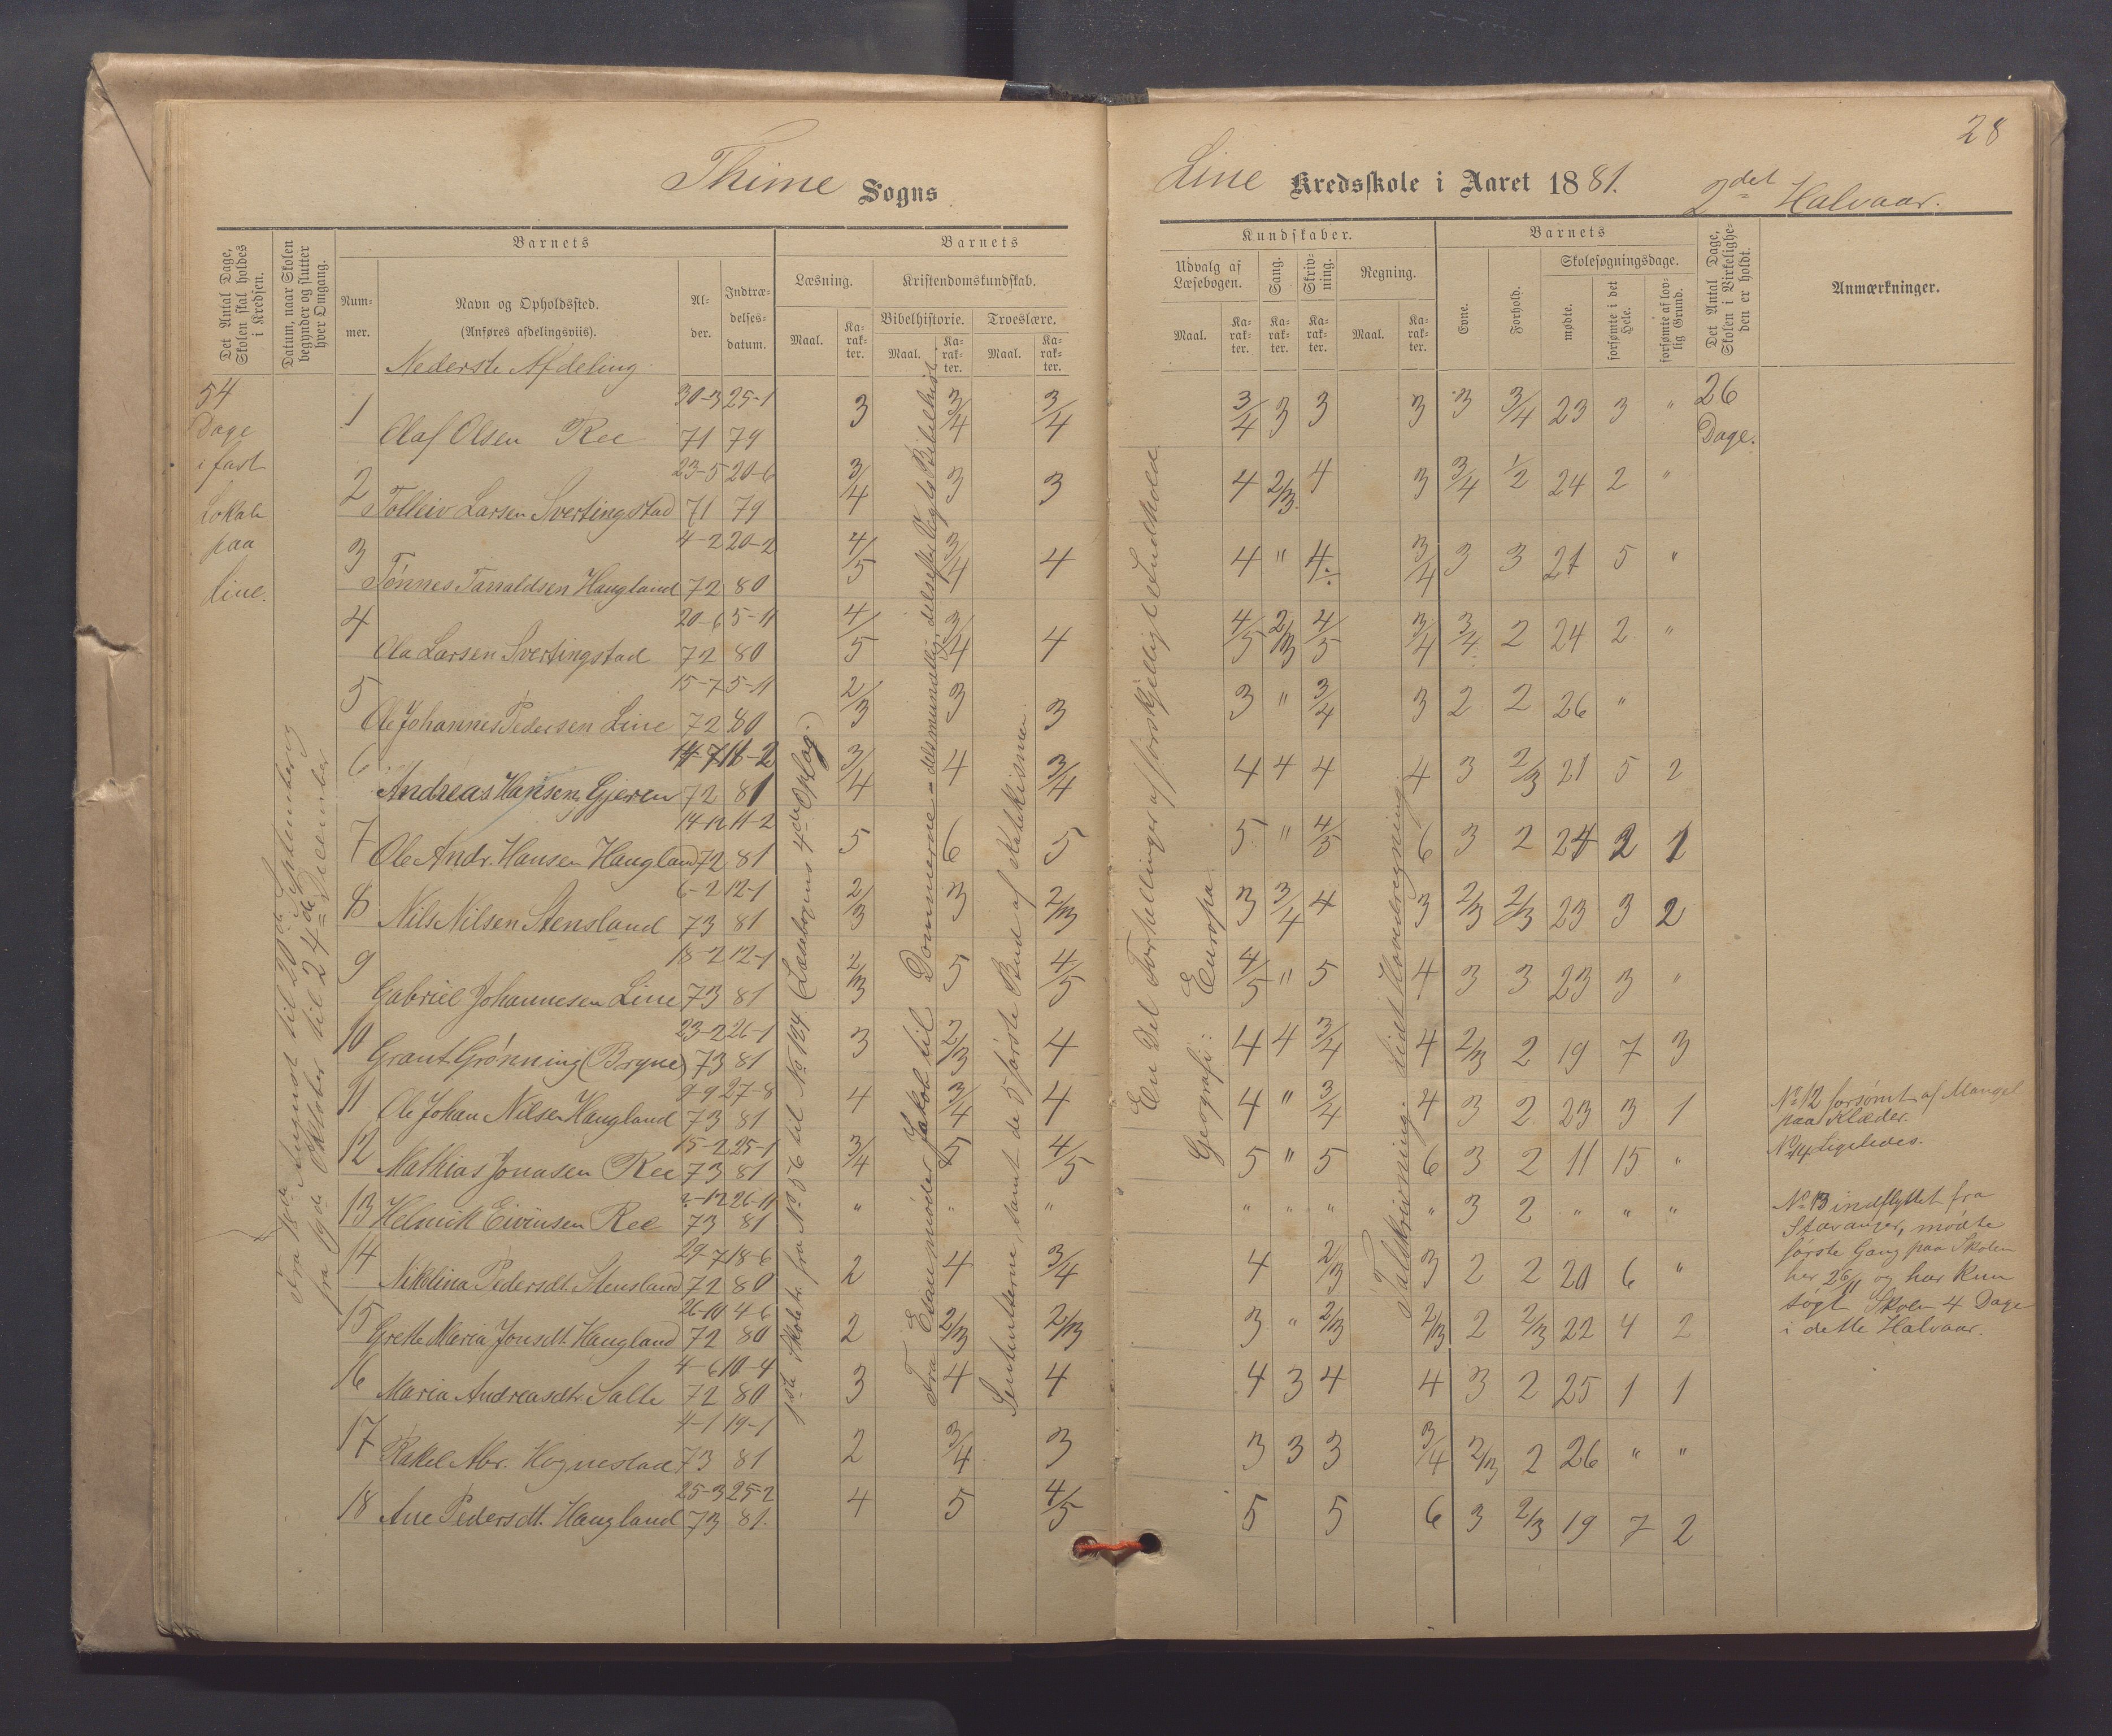 28
Thime Sogns
Line Kredsskole i Aaret 1881. 2det Halvaar.
Det Antal Dage, Skolen skal holdes i Kredsen.
Datum, naar Skolen begynder og slutter hver Omgang.
Barnets
Num-mer.
Navn og Opholdssted.
(Anføres afdelingsviis).
Al-der.
Indtræ-delses-datum.
Barnets
Læsning.
Maal.
Ka-rak-ter.
Kristendomskundskab.
Bibelhistorie.
Maal.
Ka-rak-ter.
Troeslære.
Maal.
Ka-rak-ter.
Kundskaber.
Udvalg af Læsebogen.
Maal.
Ka-rak-ter.
Sang.
Ka-rak-ter.
Skriv-ning.
Ka-rak-ter.
Regning.
Maal.
Ka-rak-ter.
Barnets
Evne.
Forhold.
Skolesøgningsdage.
mødte.
forsømte i det Hele.
forsømte af lov-lig Grund.
Det Antal Dage, Skolen i Virkelighe-den er holdt.
Anmærkninger.
Nederste Afdeling
54
Dage
i fast
Lokale
paa
Line.
Fra 18de August til 20de September og
fra 19de Oktober til 24de December
1ste Skoletr. fra No 56 til No 124. (Læsebogens 4de Oplag.)
Fra Esau møder Jakob til Dommerne - dels mundtlig, dels efter Vogts Bibelhist.
Sententserne, samt de 5 første Bud af Katekismen
En Del Fortællinger af forskjelligt Indhold
Geografi: Europa
Talskrivning. Lidt Hovedregning.
26
Dage.
1 Olaf Olsen Ree 30-3 71 25-1 79 3 3/4 3/4 3/4 3 3 3 3 3/4 23 3 "
2 Tolleiv Larsen Svertingstad 23-5 71 20-6 79 3/4 3 3 4 2/3 4 3 3/4 1/2 24 2 "
3 Tønnes Tarraldsen Haugland 4-2 72 20-2 80 4/5 3/4 4 4 " 4÷ 3/4 3 3 21 5 "
4 Ola Larsen Svertingstad 20-6 72 5-11 80 4/5 3/4 4 4/5 2/3 4/5 3/4 3/4 2 24 2 "
5 Ole Johannes Pedersen Line 15-7 72 5-11 80 2/3 3 3 3 " 3/4 3 2 2 26 "
6 Andreas Hansen Gjeren 14-7 72 11-2 81 3/4 4 3/4 4 4 4 4 3 2/3 21 5 2
7 Ole Andr. Hansen Haugland 14-12 72 11-2 81 5 6 5 5 " 4/5 6 3 2 24 2 1
8 Nils Nilsen Stensland 6-2 73 12-1 81 2/3 3 2/3 3 3/4 4 3 2/3 2/3 23 3 2
9 Gabriel Johannesen Line 18-2 73 12-1 81 2/3 5 4/5 4/5 " 5 4 3 3 23 3 "
10 Grant Grønning (Bryne) 23-2 73 26-1 81 3 2/3 4 4 4 3/4 4 2/3 2 19 7 3
11 Ole Johan Nilsen Haugland 9-9 73 27-8 81 4 3/4 4 4 " 3/4 4 3 2 23 3 1
12 Mathias Jonasen Ree 15-2 73 25-1 81 3/4 5 4/5 5 " 5 6 3 2 11 15 "
13 Helmik Eivinsen Ree 2-12 73 26-11 81 " " " " " " " 3 2 " " "
14 Nikolina Pedersdt. Stensland 29-7 72 18-6 80 2 4 3/4 4 2/3 3 2 2 20 6 "
15 Grethe Maria Jonsdt. Haugland 26-10 72 4-6 80 2 2/3 2/3 3 " 2/3 2/3 2 2/3 22 4 2
16 Maria Andreasdtr. Salte 4-6 72 10-4 80 3 4 4 4 3 4 4 3 2 25 1 1
17 Rakel Abr. Hognestad 4-1 73 19-1 81 2 3/4 3 3 3 3 3/4 2/3 2 26 " "
18 Ane Pedersdt. Haugland 25-3 73 25-2 81. 4 5 4/5 5 5 6 3 2/3 19 7 2
No 12 forsømt af Mangel
paa Klæder.
No 14 Ligeledes.
No 13 indflyttet fra
Stavanger, mødte
første Gang paa Skolen
her 26/11 og har kun
søgt Skolen 4 Dage
i dette Halvaar.